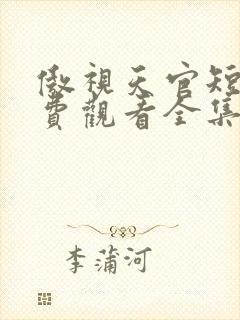 傲視天官短
費觀看全集
李蒲河